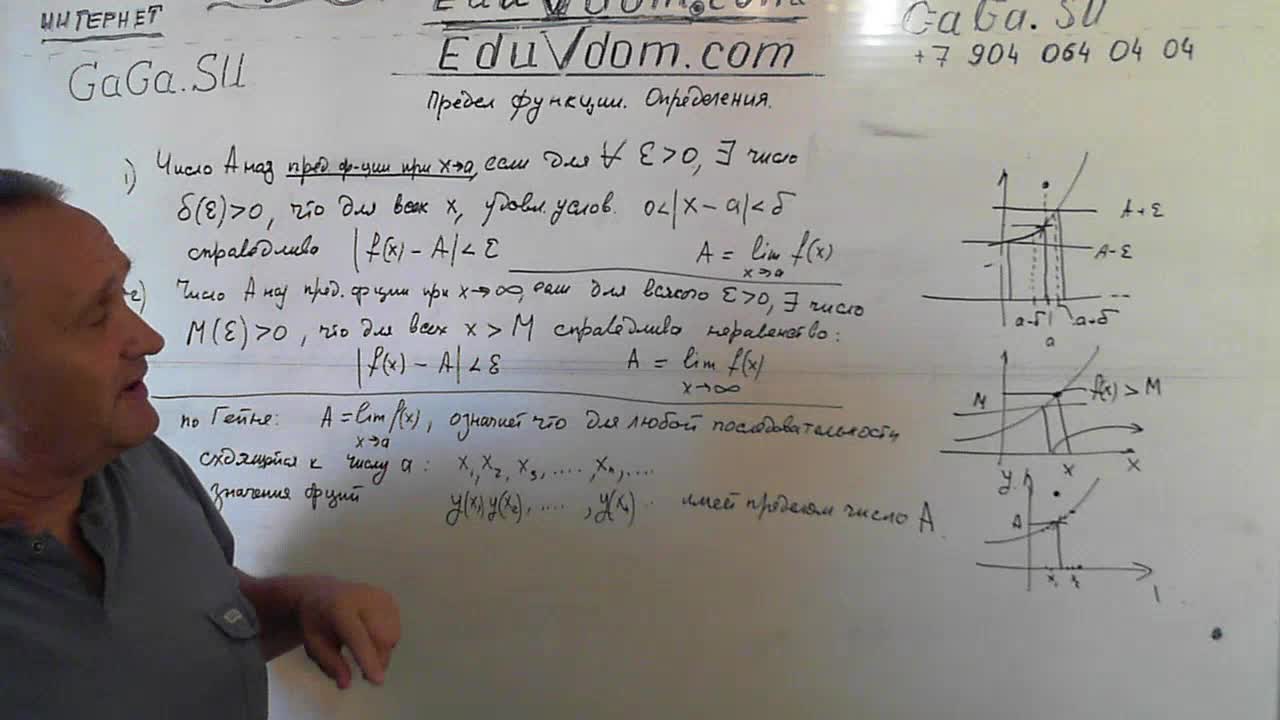 ИНТЕРНЕТ
EduVdom.com
GaGa.SU
EduVdom.com
GaGa.SU
+7 904 064 04 04
Предел функции. Определения.
1) Число A наз пред. ф-ции при x→a, если для ∀ ε>0, ∃ число
δ(ε)>0, что для всех x, удовл. услов. 0<|x-a|<δ
справедливо |f(x)-A|<ε A = lim f(x)
x→a
2) Число A наз пред. ф-ции при x→∞, если для всякого ε>0, ∃ число
M(ε)>0, что для всех x>M справедливо неравенство:
|f(x)-A|<ε A = lim f(x)
x→∞
по Гейне: A = lim f(x), означает что для любой последовательности
x→a
сходящейся к числу a: x₁, x₂, x₃, ...., xₙ, ....
значения фций y(x₁) y(x₂), ...., y(xₙ) .. имеет пределом число A.
A+ε
A-ε
a-δ
a+δ
a
M
f(x) > M
x
x
y
A
x₁ x₂